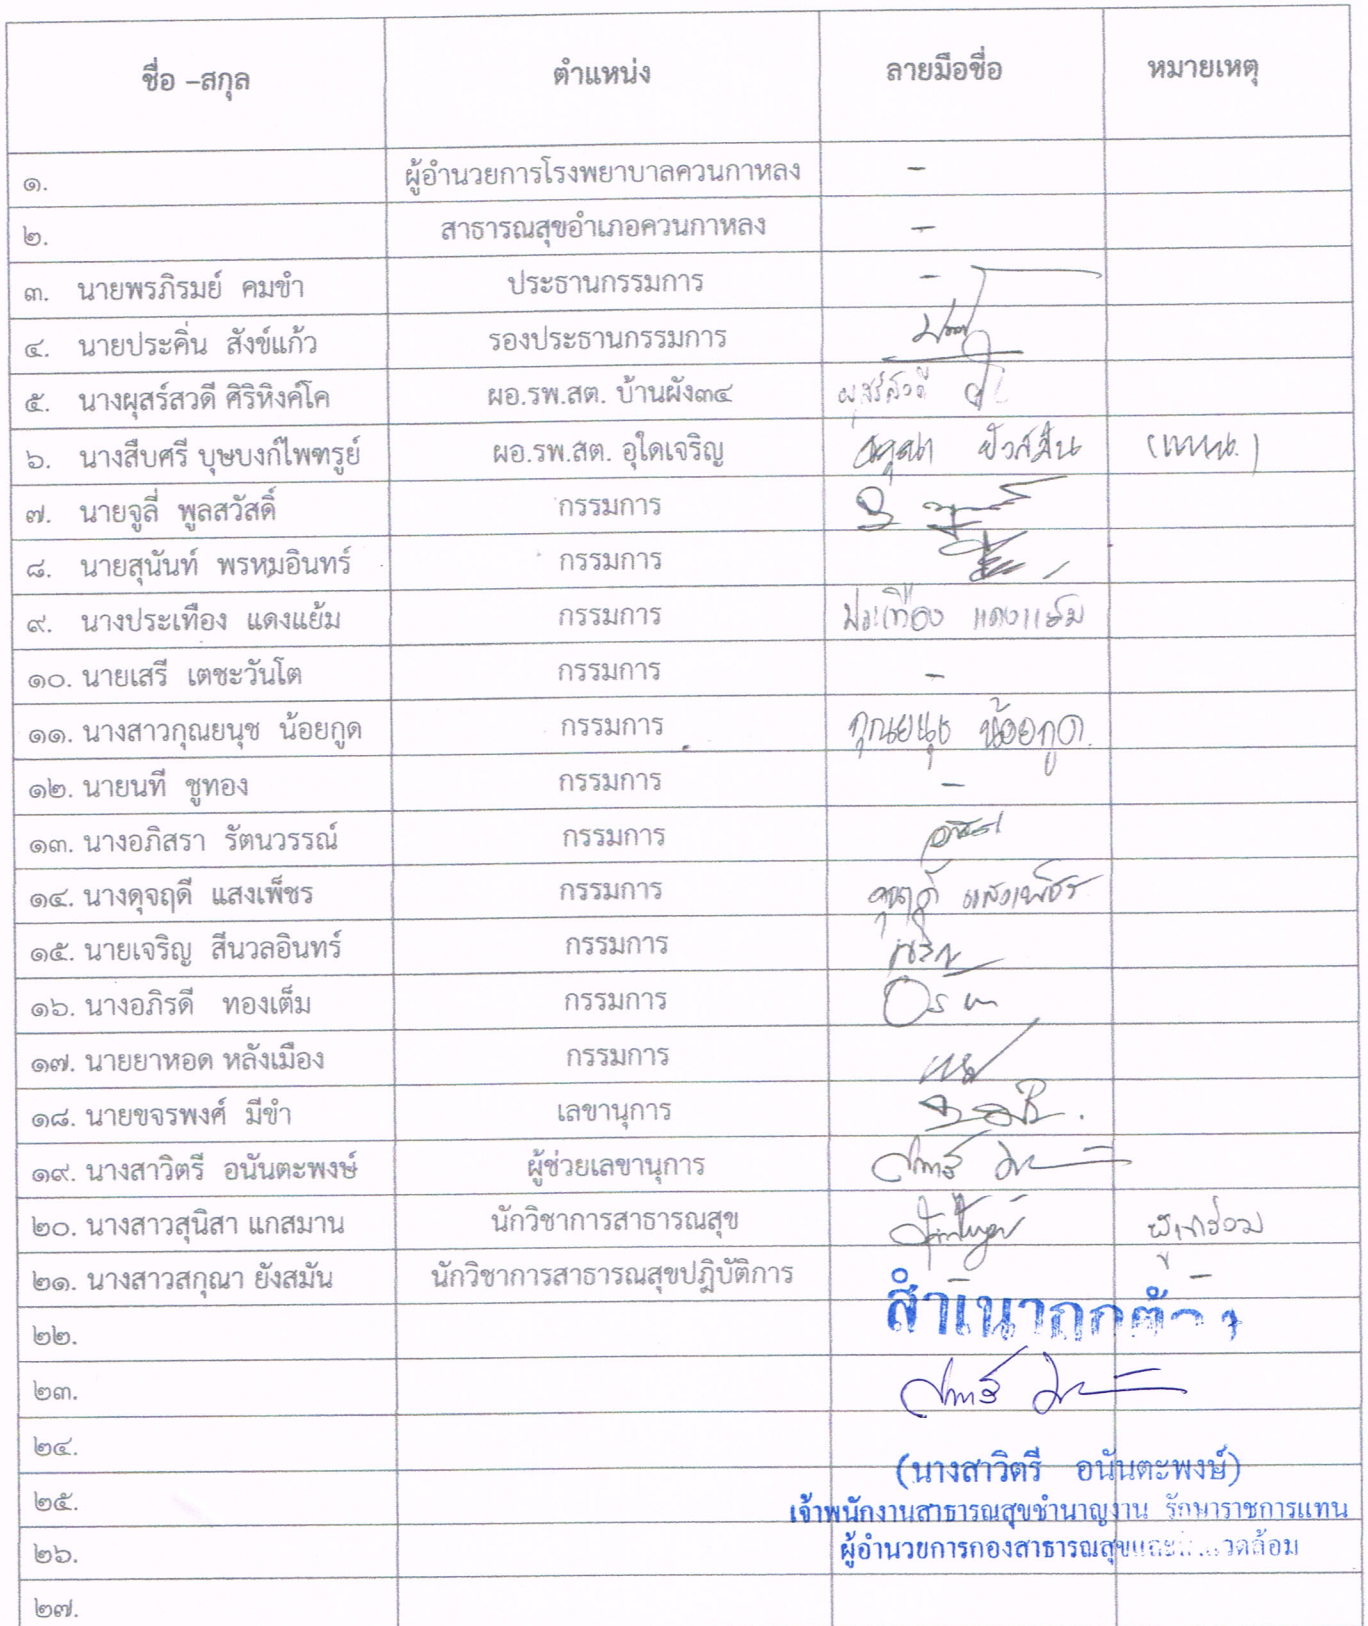 ชื่อ –สกุล ตำแหน่ง ลายมือชื่อ หมายเหตุ
๑. ผู้อำนวยการโรงพยาบาลควนกาหลง –
๒. สาธารณสุขอำเภอควนกาหลง –
๓. นายพรภิรมย์ คมขำ ประธานกรรมการ –
๔. นายประคิ่น สังข์แก้ว รองประธานกรรมการ
๕. นางผุสร์สวดี ศิริหิงค์โค ผอ.รพ.สต. บ้านผัง๓๔ ผุสร์สวดี
๖. นางสืบศรี บุษบงก์ไพฑรูย์ ผอ.รพ.สต. อุใดเจริญ (แทน.)
๗. นายจูลี่ พูลสวัสดิ์ กรรมการ
๘. นายสุนันท์ พรหมอินทร์ กรรมการ
๙. นางประเทือง แดงแย้ม กรรมการ ประเทือง แดงแย้ม
๑๐. นายเสรี เตชะวันโต กรรมการ –
๑๑. นางสาวกุณยนุช น้อยกูด กรรมการ กุณยนุช น้อยกูด
๑๒. นายนที ชูทอง กรรมการ –
๑๓. นางอภิสรา รัตนวรรณ์ กรรมการ
๑๔. นางดุจฤดี แสงเพ็ชร กรรมการ ดุจฤดี แสงเพ็ชร
๑๕. นายเจริญ สีนวลอินทร์ กรรมการ เจริญ
๑๖. นางอภิรดี ทองเต็ม กรรมการ
๑๗. นายยาหอด หลังเมือง กรรมการ
๑๘. นายขจรพงศ์ มีขำ เลขานุการ
๑๙. นางสาวิตรี อนันตะพงษ์ ผู้ช่วยเลขานุการ
๒๐. นางสาวสุนิสา แกสมาน นักวิชาการสาธารณสุข ผู้เข้าร่วม
๒๑. นางสาวสกุณา ยังสมัน นักวิชาการสาธารณสุขปฏิบัติการ –
สำเนาถูกต้อง
๒๒.
๒๓.
๒๔.
(นางสาวิตรี อนันตะพงษ์)
๒๕.
เจ้าพนักงานสาธารณสุขชำนาญงาน รักษาราชการแทน
๒๖.
ผู้อำนวยการกองสาธารณสุขและสิ่งแวดล้อม
๒๗.